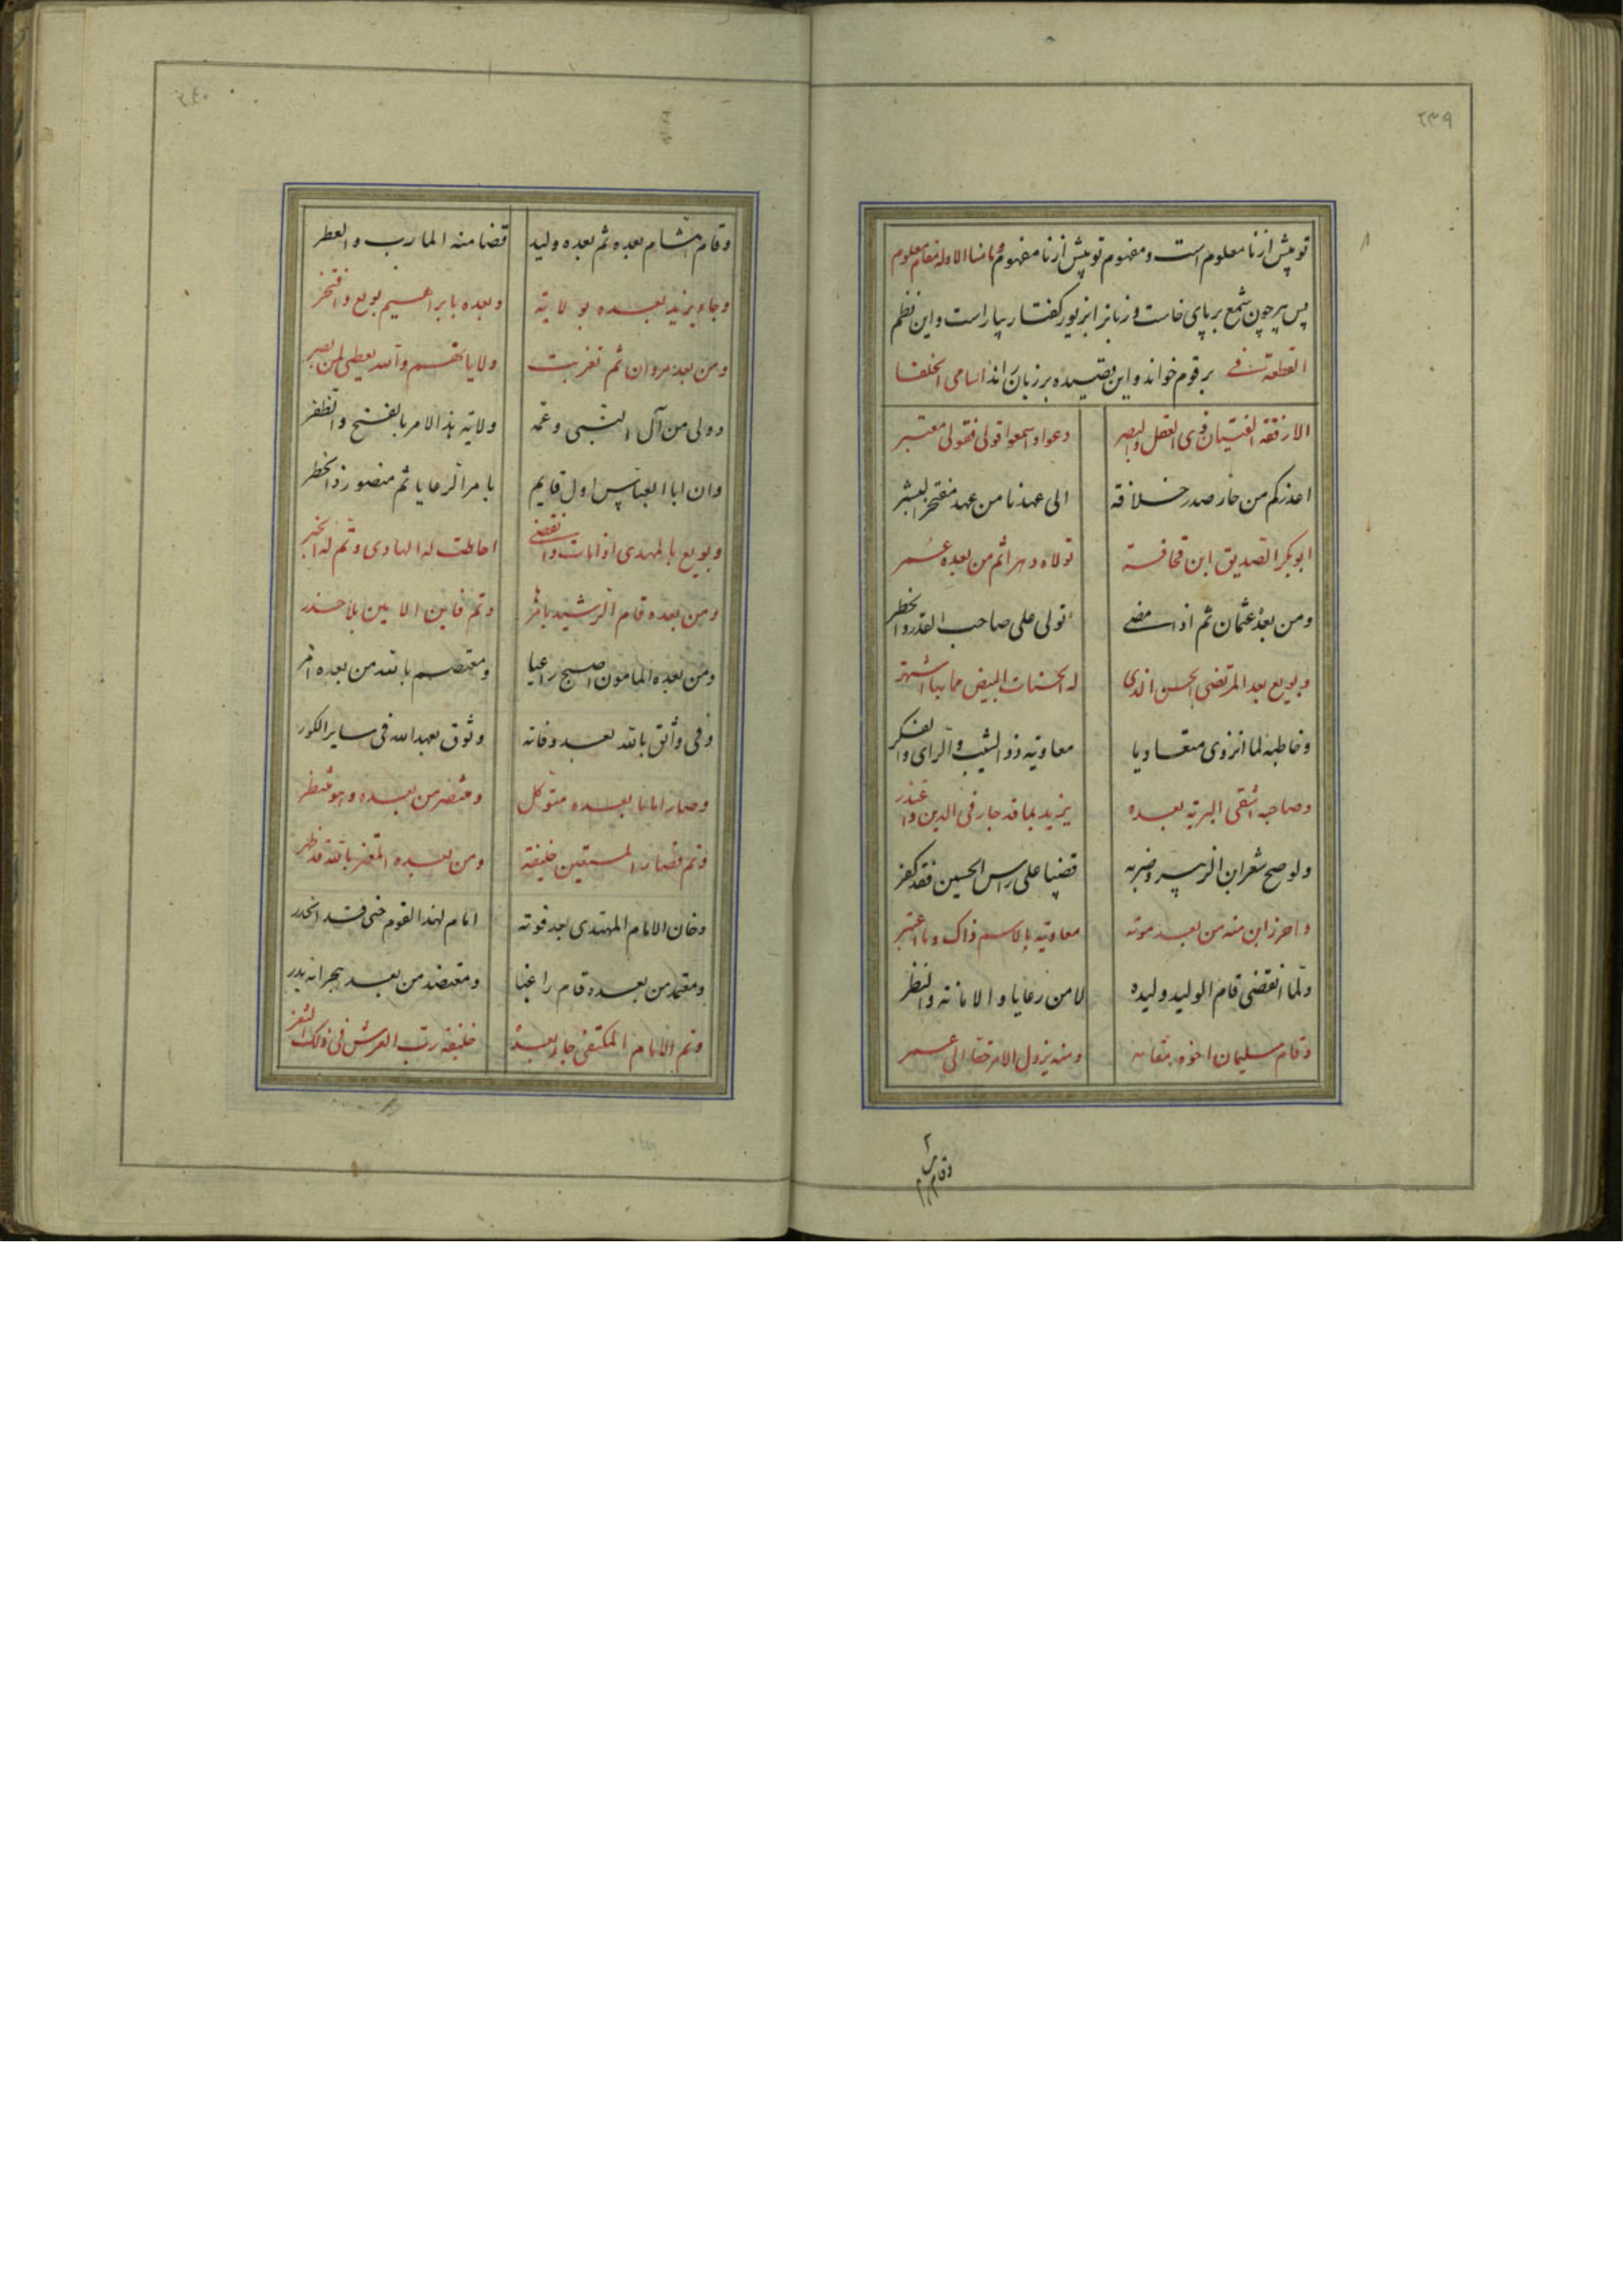 ٢٣٩
تو پیش از نا معلوم است و مفهوم تو پیش از نا مفهوم و ما منا الا وله مقام معلوم
پس پیر چون شمع بر پای خاست و زبانرا بزیور گفتار بیاراست و این نظم
القطعة فی بر قوم خواند و این قصیده بر زبان راند اسامی الخلفا
الا رفقة الفتیان ذی العقل والبصر دعوا واسمعوا قولی فقولی معتبر
اعدکم من حاز صدر خلافة الی عهدنا من عهد مفتخر البشر
ابوبکر الصدیق ابن قحافة تولاه دهرا ثم من بعده عمر
ومن بعد عثمان ثم اذ مضی تولی علی صاحب القدر والخطر
وبویع بعد المرتضی الحسن الذی له الحسنات البیض مما بها اشتهر
وخاطبه لما انزوی متعادیا معاویه ذو الشیب والرای والفکر
وصاحبه اشقی البریة بعده یزید بما قد جار فی الدین والغدر
ولو صح شعر ابن الزبیر وضربه قضیبا علی راس الحسین فقد کفر
واحرز ابن منه من بعد موته معاویه بالاسم ذاک وما اعتبر
ولما انقضی قام الولید ولیده لامن رعایا والامانة والنظر
وقام سلیمان اخوه مقامه ومنه یزول الامر حقا الی عمر
وقام هشام
وقام هشام بعده ثم بعده ولید قضا منه المارب والعطر
وجاء یزید بعده بولایة وبعده بابراهیم بویع وافتخر
ومن بعد مروان ثم تغربت ولایاتهم والله یعطی لمن بصر
وولی من آل النبی وعمه ولایة هذا الامر بالفتح والظفر
وان ابا العباس اول قایم بامر الرعایا ثم منصور ذو الخطر
وبویع بالمهدی اذ مات وانقضی احاطت له الهادی وتم له الخبر
ومن بعده قام الرشید بامرها وتم فامین الامین بلا حذر
ومن بعده المامون اصبح راعیا ومعتصم بالله من بعده امر
وفی واثق بالله بعد وفاته وثوق بعهد الله فی سایر الکور
وصار اماما بعده متوکل ومنتصر من بعده وهو منتظر
وتم فصار المستعین خلیفة ومن بعده المعتز بالله قد ظهر
وخان الامام المهتدی بعد فوته امام لهذا القوم حتی قد انحدر
ومعتمد من بعده قام راغبا ومعتضد من بعد هجرانه بدر
وتم الامام المکتفی جاء بعده خلیفة رب العرش فی ذلک الثغر